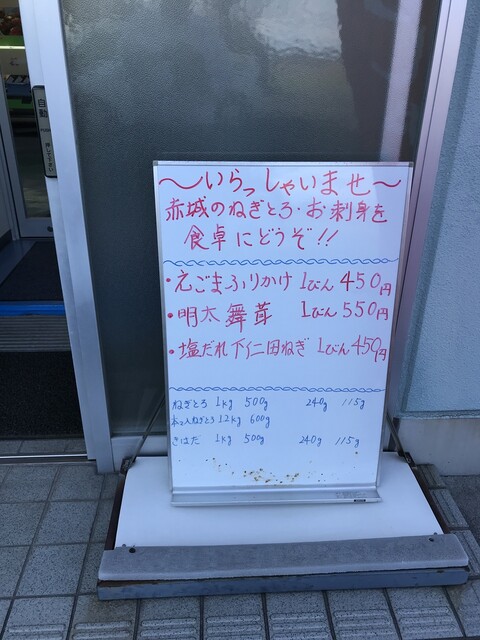 自動
押して下さい
～いらっしゃいませ～
赤城のねぎとろ・お刺身を
食卓にどうぞ!!
・えごまふりかけ 1びん 450円
・明太舞茸 1びん 550円
・塩だれ下仁田ねぎ 1びん 450円
ねぎとろ 1kg 500g 240g 115g
本マ入ねぎとろ 1.2kg 600g
きはだ 1kg 500g 240g 115g